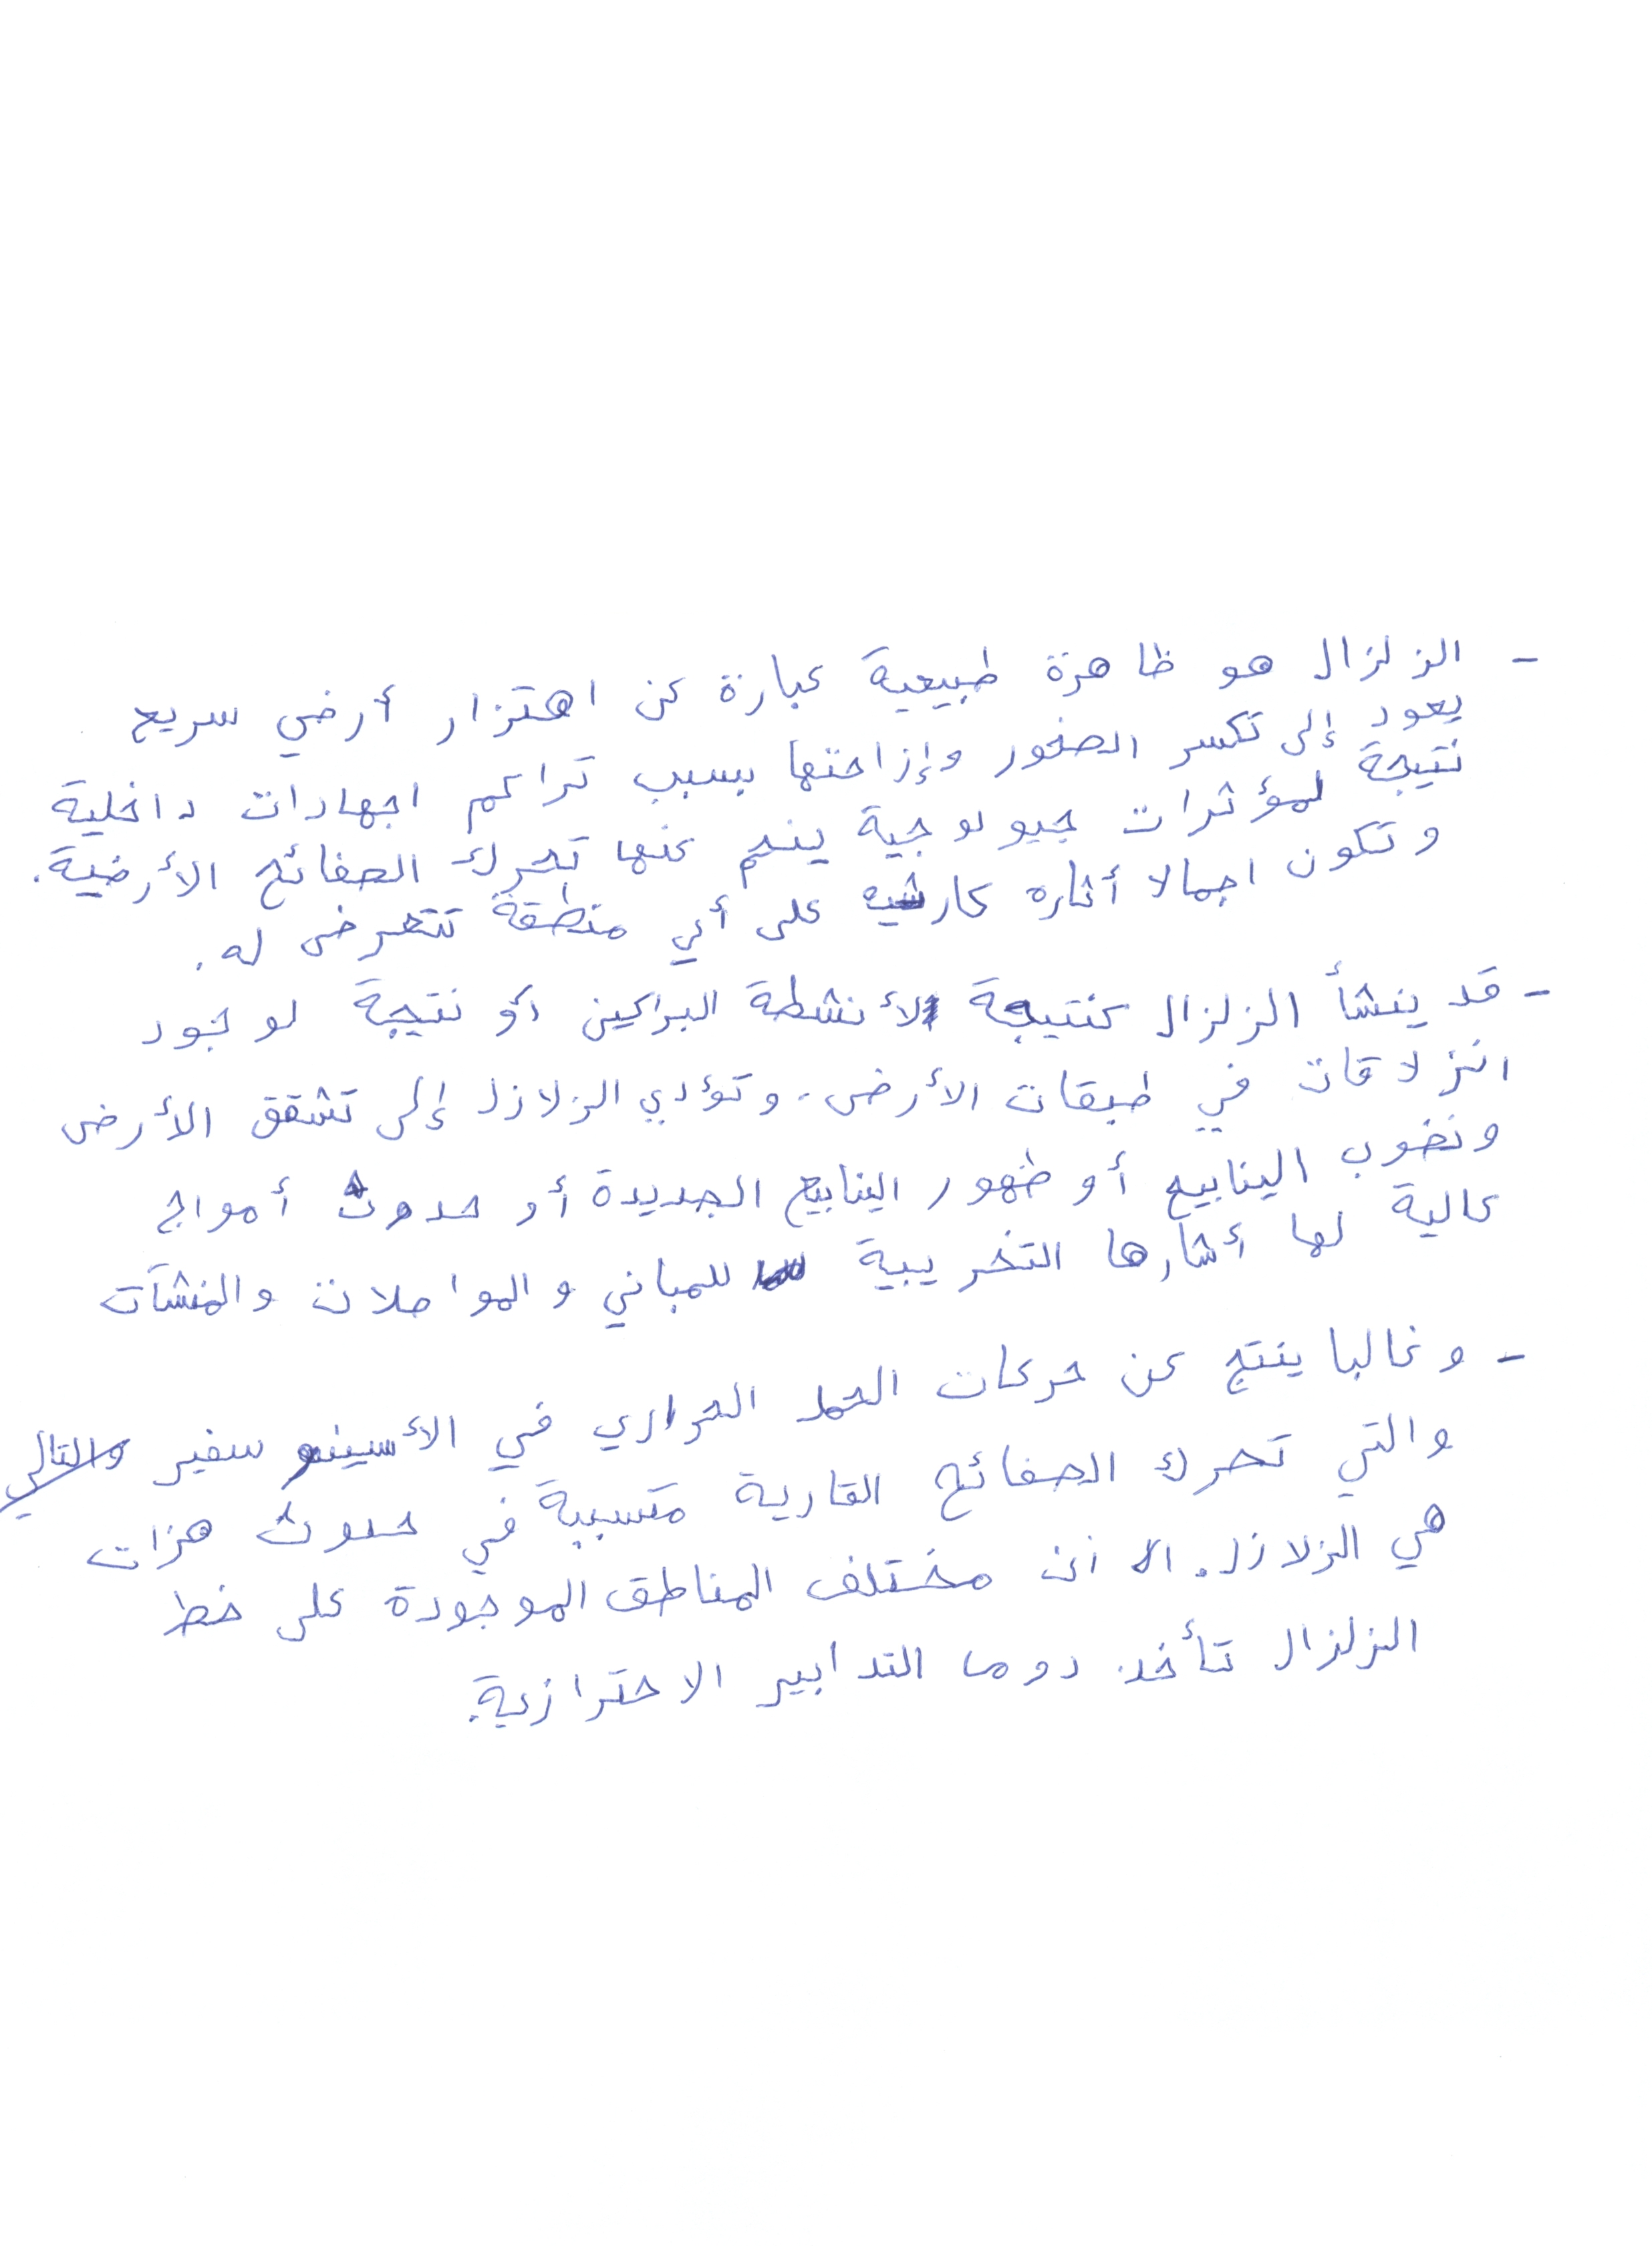 - الزلزال هو ظاهرة طبيعية عبارة عن اهتزار أرضي سريع
يعود إلى تكسر الصخور وإزاحتها بسبب تراكم اجهادات داخلية
نتيجة لمؤثرات جيولوجية ينجم عنها تحرك الصفائح الأرضية.
وتكون اجمالا أثاره كارثية على أي منطقة تتعرض له.
- قد ينشأ الزلزال كنتيجة لأنشطة البراكين أو نتيجة لوجود
انزلاقات في طبقات الأرض. وتؤدي الزلازل إلى تشقق الأرض
ونضوب الينابيع أو ظهور الينابيع الجديدة أو حدوث أمواج
عالية لها أثارها التخريبية للمباني والمواصلات والمنشآت
- وغالبا ينتج عن حركات الحمل الحراري في الأسينوسفير والتالي
والتي تحرك الصفائح القارية متسببة في حدوث هزات
هي الزلازل. الا أن مختلف المناطق الموجودة على خط
الزلزال تأخذ دوما التدابير الاحترازية.